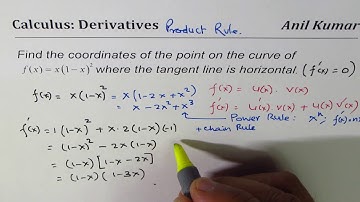 Calculus: Derivatives Product Rule. Anil Kumar
Find the coordinates of the point on the curve of
f(x) = x(1-x)² where the tangent line is horizontal. (f'(x) = 0)
f(x) = x(1-x)² = x(1-2x+x²) f(x) = u(x). v(x)
= x - 2x² + x³ f'(x) = u'(x). v(x) + u(x) v'(x)
Power Rule: xⁿ;
f'(x) = 1(1-x)² + x·2(1-x)(-1) + chain Rule
= (1-x)² - 2x(1-x)
= (1-x)[1-x-2x]
= (1-x)(1-3x)